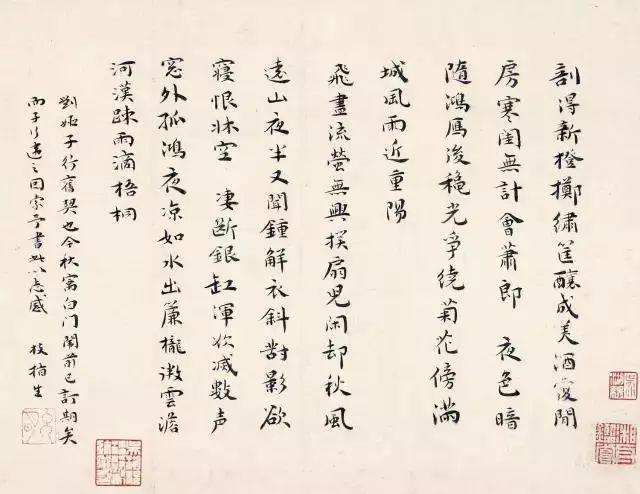 剖得新橙擲繡筐釀成美酒覆閒
房寒閨無計會蕭郎 夜色暗
隨鴻雁後穐光爭繞菊花傍滿
城風雨近重陽
飛盡流螢無興撲扇兒閑却秋風
遠山夜半又聞鍾解衣斜對影欲
寢恨牀空 淒斷銀缸渾欲滅數声
窓外孤鴻夜凉如水出簾櫳微雲澹
河漢踈雨滴梧桐
劉姬子行舊契也今秋寓白门前已訂期矣
而子行之因索予書此以志感 枝指生